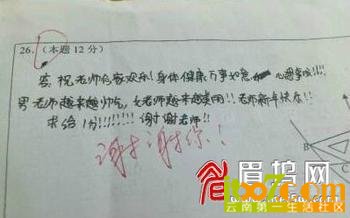 26.（本题12分）
答：祝老师合家欢乐！身体健康 万事如意 心想事成！！！
男老师越来越帅气，女老师越来越美丽！！老师新年快乐！！
求给1分！！！！！！谢谢老师！！
谢谢你！
眉坞网
云南第一生活社区